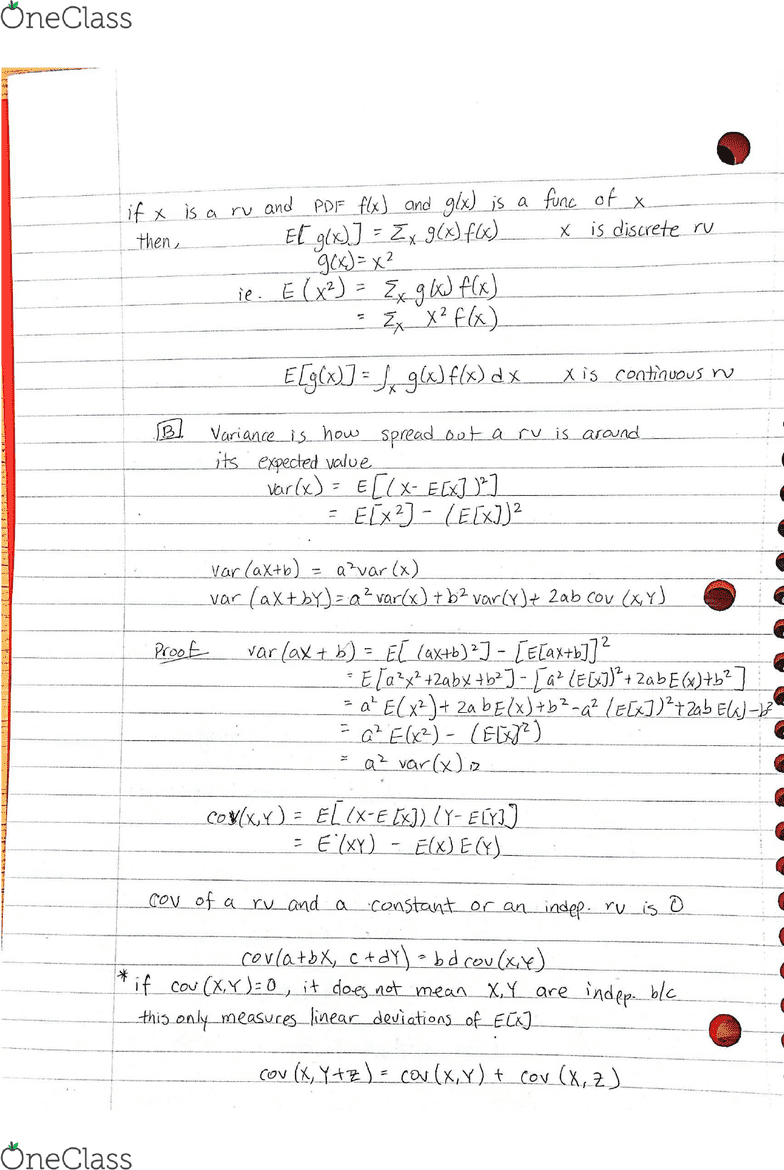 OneClass
if x is a rv and PDF f(x) and g(x) is a func of x
then, E[g(x)] = Σₓ g(x) f(x) x is discrete rv
g(x) = x²
ie. E(x²) = Σₓ g(x) f(x)
= Σₓ x² f(x)
E[g(x)] = ∫ₓ g(x) f(x) dx x is continuous rv
B Variance is how spread out a rv is around
its expected value
var(x) = E[(x - E[x])²]
= E[x²] - (E[x])²
var(ax+b) = a² var(x)
var(aX+bY) = a² var(x) + b² var(Y) + 2ab cov(X,Y)
Proof var(ax+b) = E[(ax+b)²] - [E[ax+b]]²
= E[a²x²+2abx+b²] - [a²(E[x])²+2abE(x)+b²]
= a²E(x²)+2abE(x)+b²-a²(E[x])²+2abE(x)-b²
= a²E(x²) - (E[x]²)
= a² var(x)
cov(x,Y) = E[(x-E[x])(Y-E[Y])]
= E(XY) - E(x)E(Y)
cov of a rv and a constant or an indep. rv is 0
cov(a+bX, c+dY) = bd cov(x,Y)
* if cov(X,Y)=0, it does not mean X,Y are indep. b/c
this only measures linear deviations of E[x]
cov(x, Y+z) = cov(x,Y) + cov(X,z)
OneClass